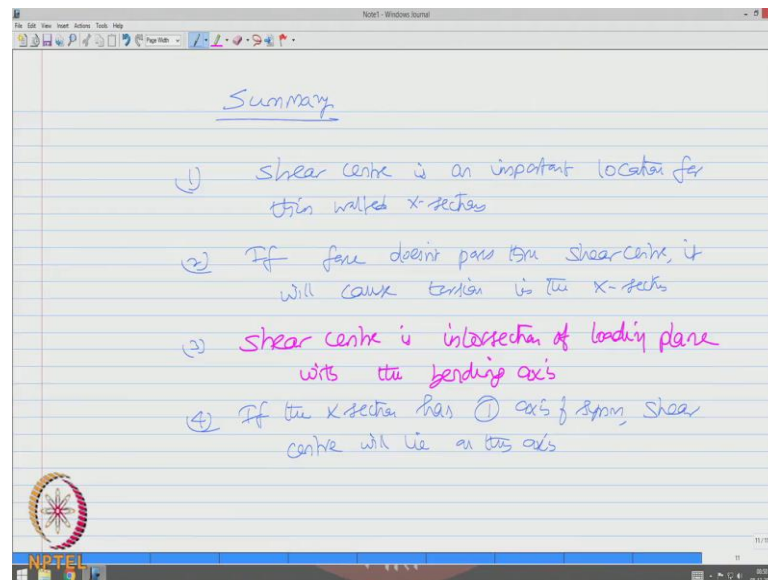 Note1 - Windows Journal
File Edit View Insert Actions Tools Help
Page Width
Summary
(1) Shear centre is an important location for
thin walled x-section
(2) If force doesn't pass thru shear centre, it
will cause torsion in the x-section
(3) Shear centre is intersection of loading plane
with the bending axis
(4) If the x section has (1) axis of symm, shear
centre will lie on this axis
NPTEL
11